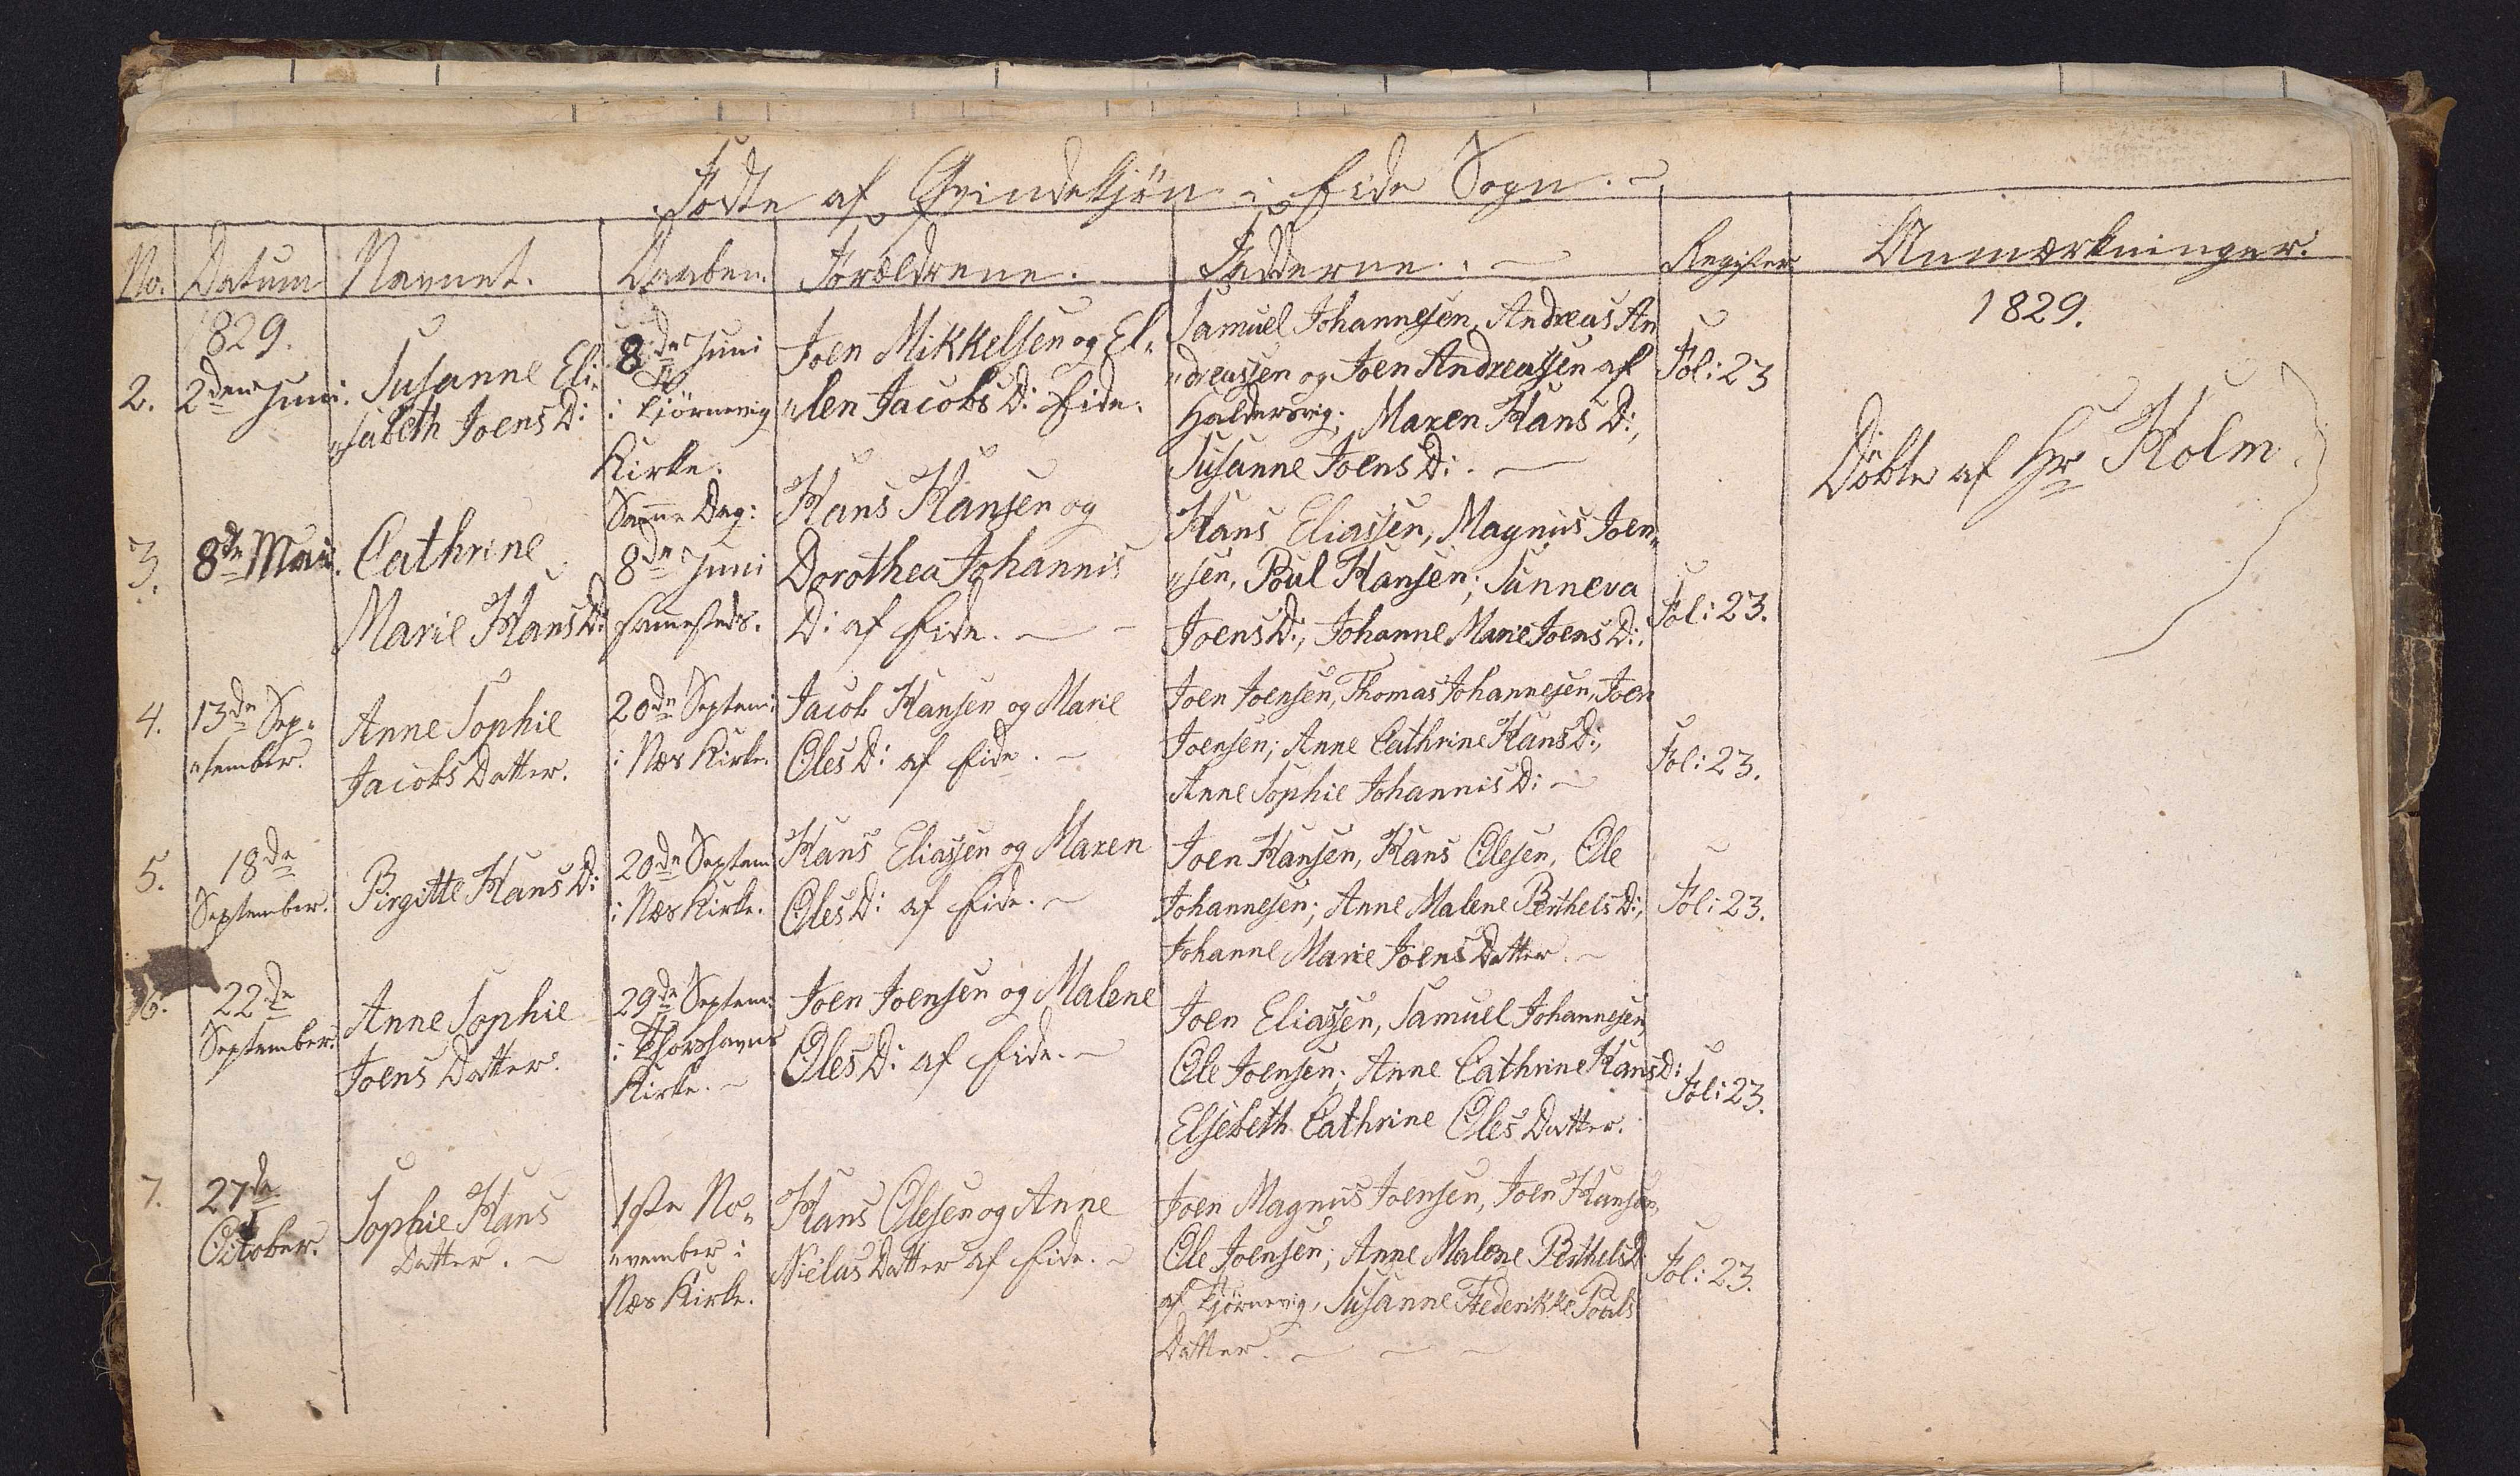 Födte af Qvindekjön i Eide Sogn.
No. Datum Navnet. Daaben. Forældrene. Fadderne. Register Anmærkninger.
1829.
1829.
2.
2den Juni.
Susanne Eli-
"sabeth Joens D:
8de Juni
i Tjörnevig
Kirke.
Joen Mikkelsen og El-
"len Jacobs D: Eide.
Samuel Johannesen, Andreas An
"dreassen og Joen Andreassen af
Haldersvig; Maren Hans D:,
Susanne Joens D:
Fol: 23
Döbte af Hr Holm
3.
8de Mai.
Cathrine
Marie Hans D:
Samme Dag:
8de Juni
sammesteds.
Hans Hansen og
Dorothea Johannis
D: af Eide.
Hans Eliassen, Magnus Joen-
"sen, Poul Hansen; Sunneva
Joens D:, Johanne Marie Joens D:.
Fol: 23.
4.
13de Sep-
"tember.
Anne Sophie
Jacobs Datter.
20de Septem:
i Næs Kirke.
Jacob Hansen og Marie
Oles D: af Eide.
Joen Joensen, Thomas Johannesen, Joen
Joensen; Anne Cathrine Hans D:,
Anne Sophie Johannis D:
Fol: 23.
5.
18de
September.
Birgitte Hans D:
20de Septem
i Næs Kirke.
Hans Eliassen og Maren
Oles D: af Eide.
Joen Hansen, Hans Olesen, Ole
Johannesen; Anne Malene Berthels D:,
Johanne Marie Joens Datter.
Fol: 23.
6.
22de
September.
Anne Sophie
Joens Datter.
29de Septem:
i Thorshavns
Kirke.
Joen Joensen og Malene
Oles D: af Eide.
Joen Eliassen, Samuel Johannesen,
Ole Joensen; Anne Cathrine Hans D:
Elsebeth Cathrine Oles Datter.
Fol: 23.
7.
27de
October.
Sophie Hans
Datter.
1ste No-
"vember i
Næs Kirke.
Hans Olesen og Anne
Niclas Datter af Eide.
Joen Magnus Joensen, Joen Hansen,
Ole Joensen; Anne Malene Berthels D
af Tjörnevig, Susanne Frederikke Pouls
Datter.
Fol: 23.